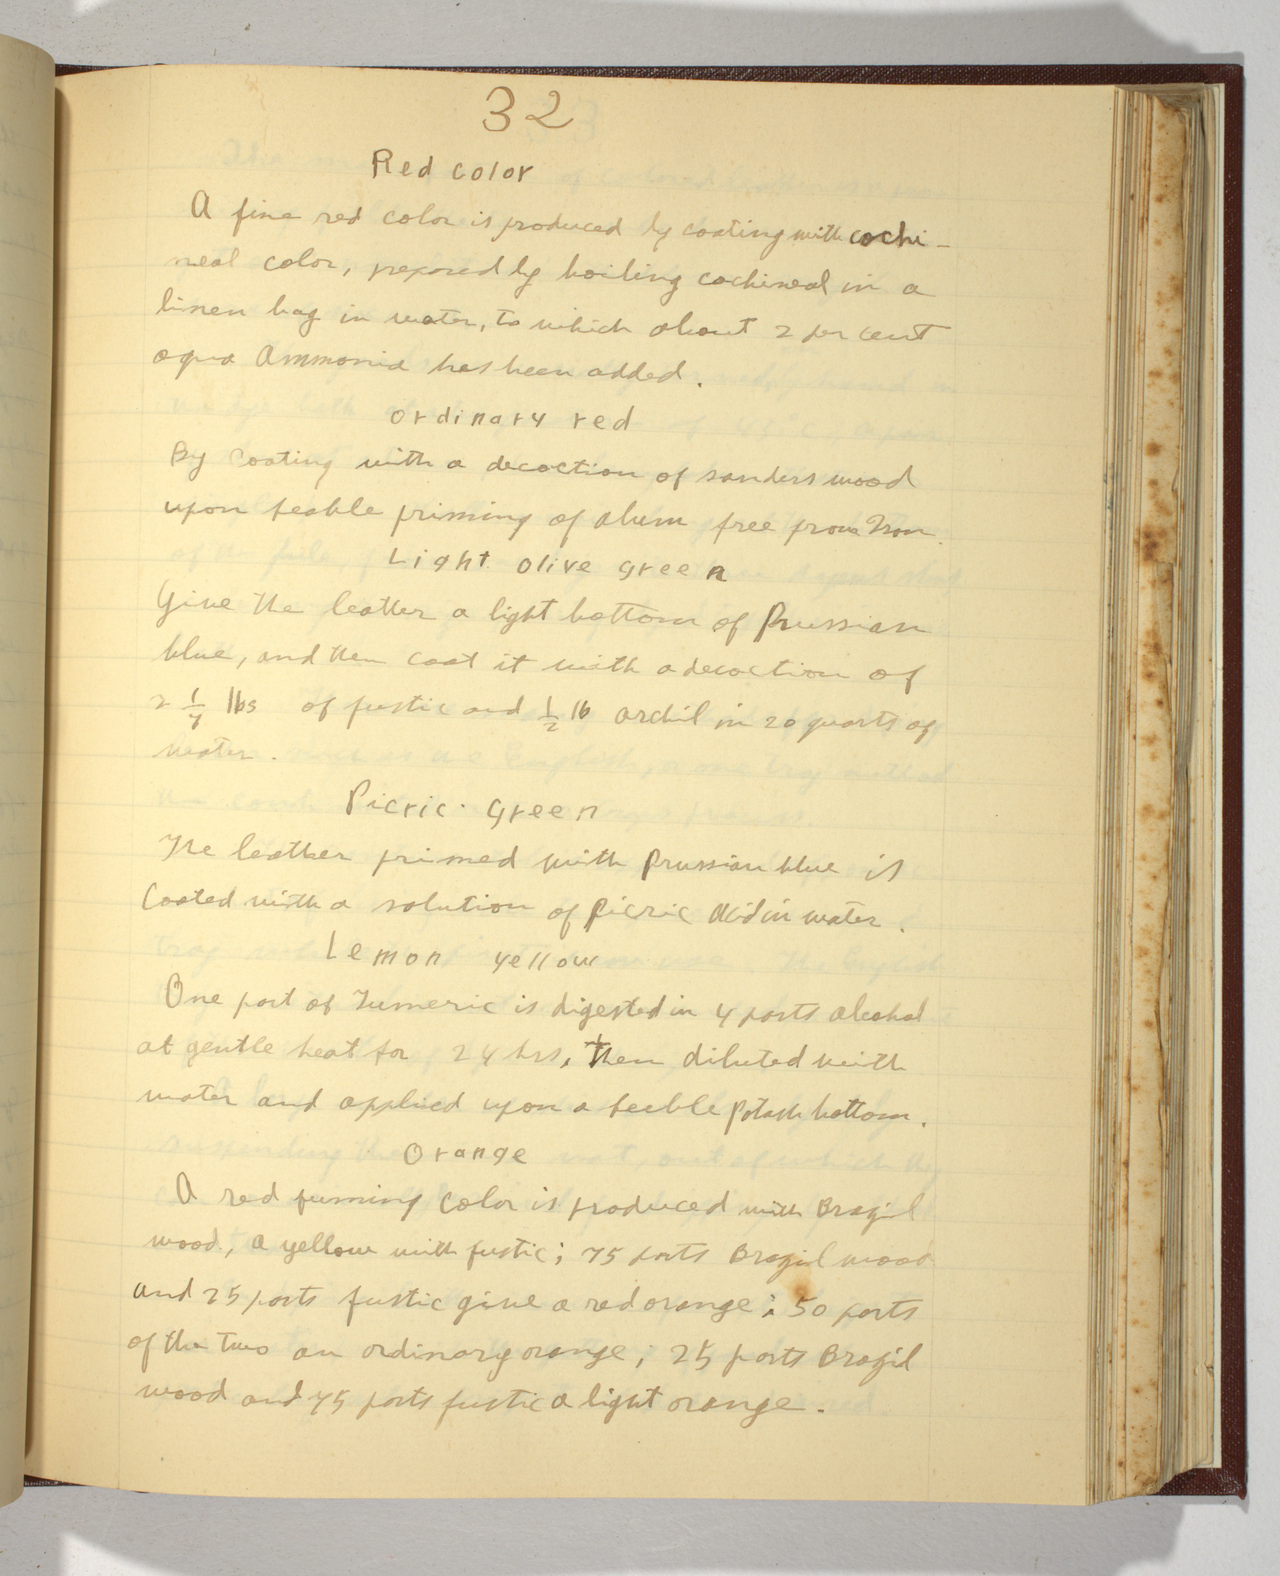 32
Red color
A fine red color is produced by coating with cochi-
neal color, prepared by boiling cochineal in a
linen bag in water, to which about 2 per cent
aqua Ammonia has been added.
ordinary red
By Coating with a decoction of sanders wood
upon feable priming of alum free from Iron.
Light olive green
Give the leather a light bottom of Prussian
blue, and then coat it with a decoction of
2 1/4 lbs of fustic and 1/2 lb archil in 20 quarts of
water.
Picric. Green
The leather primed with prussian blue is
Coated with a solution of picric Acid in water.
Lemon yellow
One part of Tumeric is digested in 4 parts alcohol
at gentle heat for 24 hrs, then diluted with
water and applied upon a feeble potash bottom.
Orange
A red color is produced with Brazil
wood, a yellow with fustic; 75 parts Brazil wood
and 25 parts fustic give a red orange; 50 parts
of the two an ordinary orange; 25 parts Brazil
wood and 75 parts fustic a light orange.